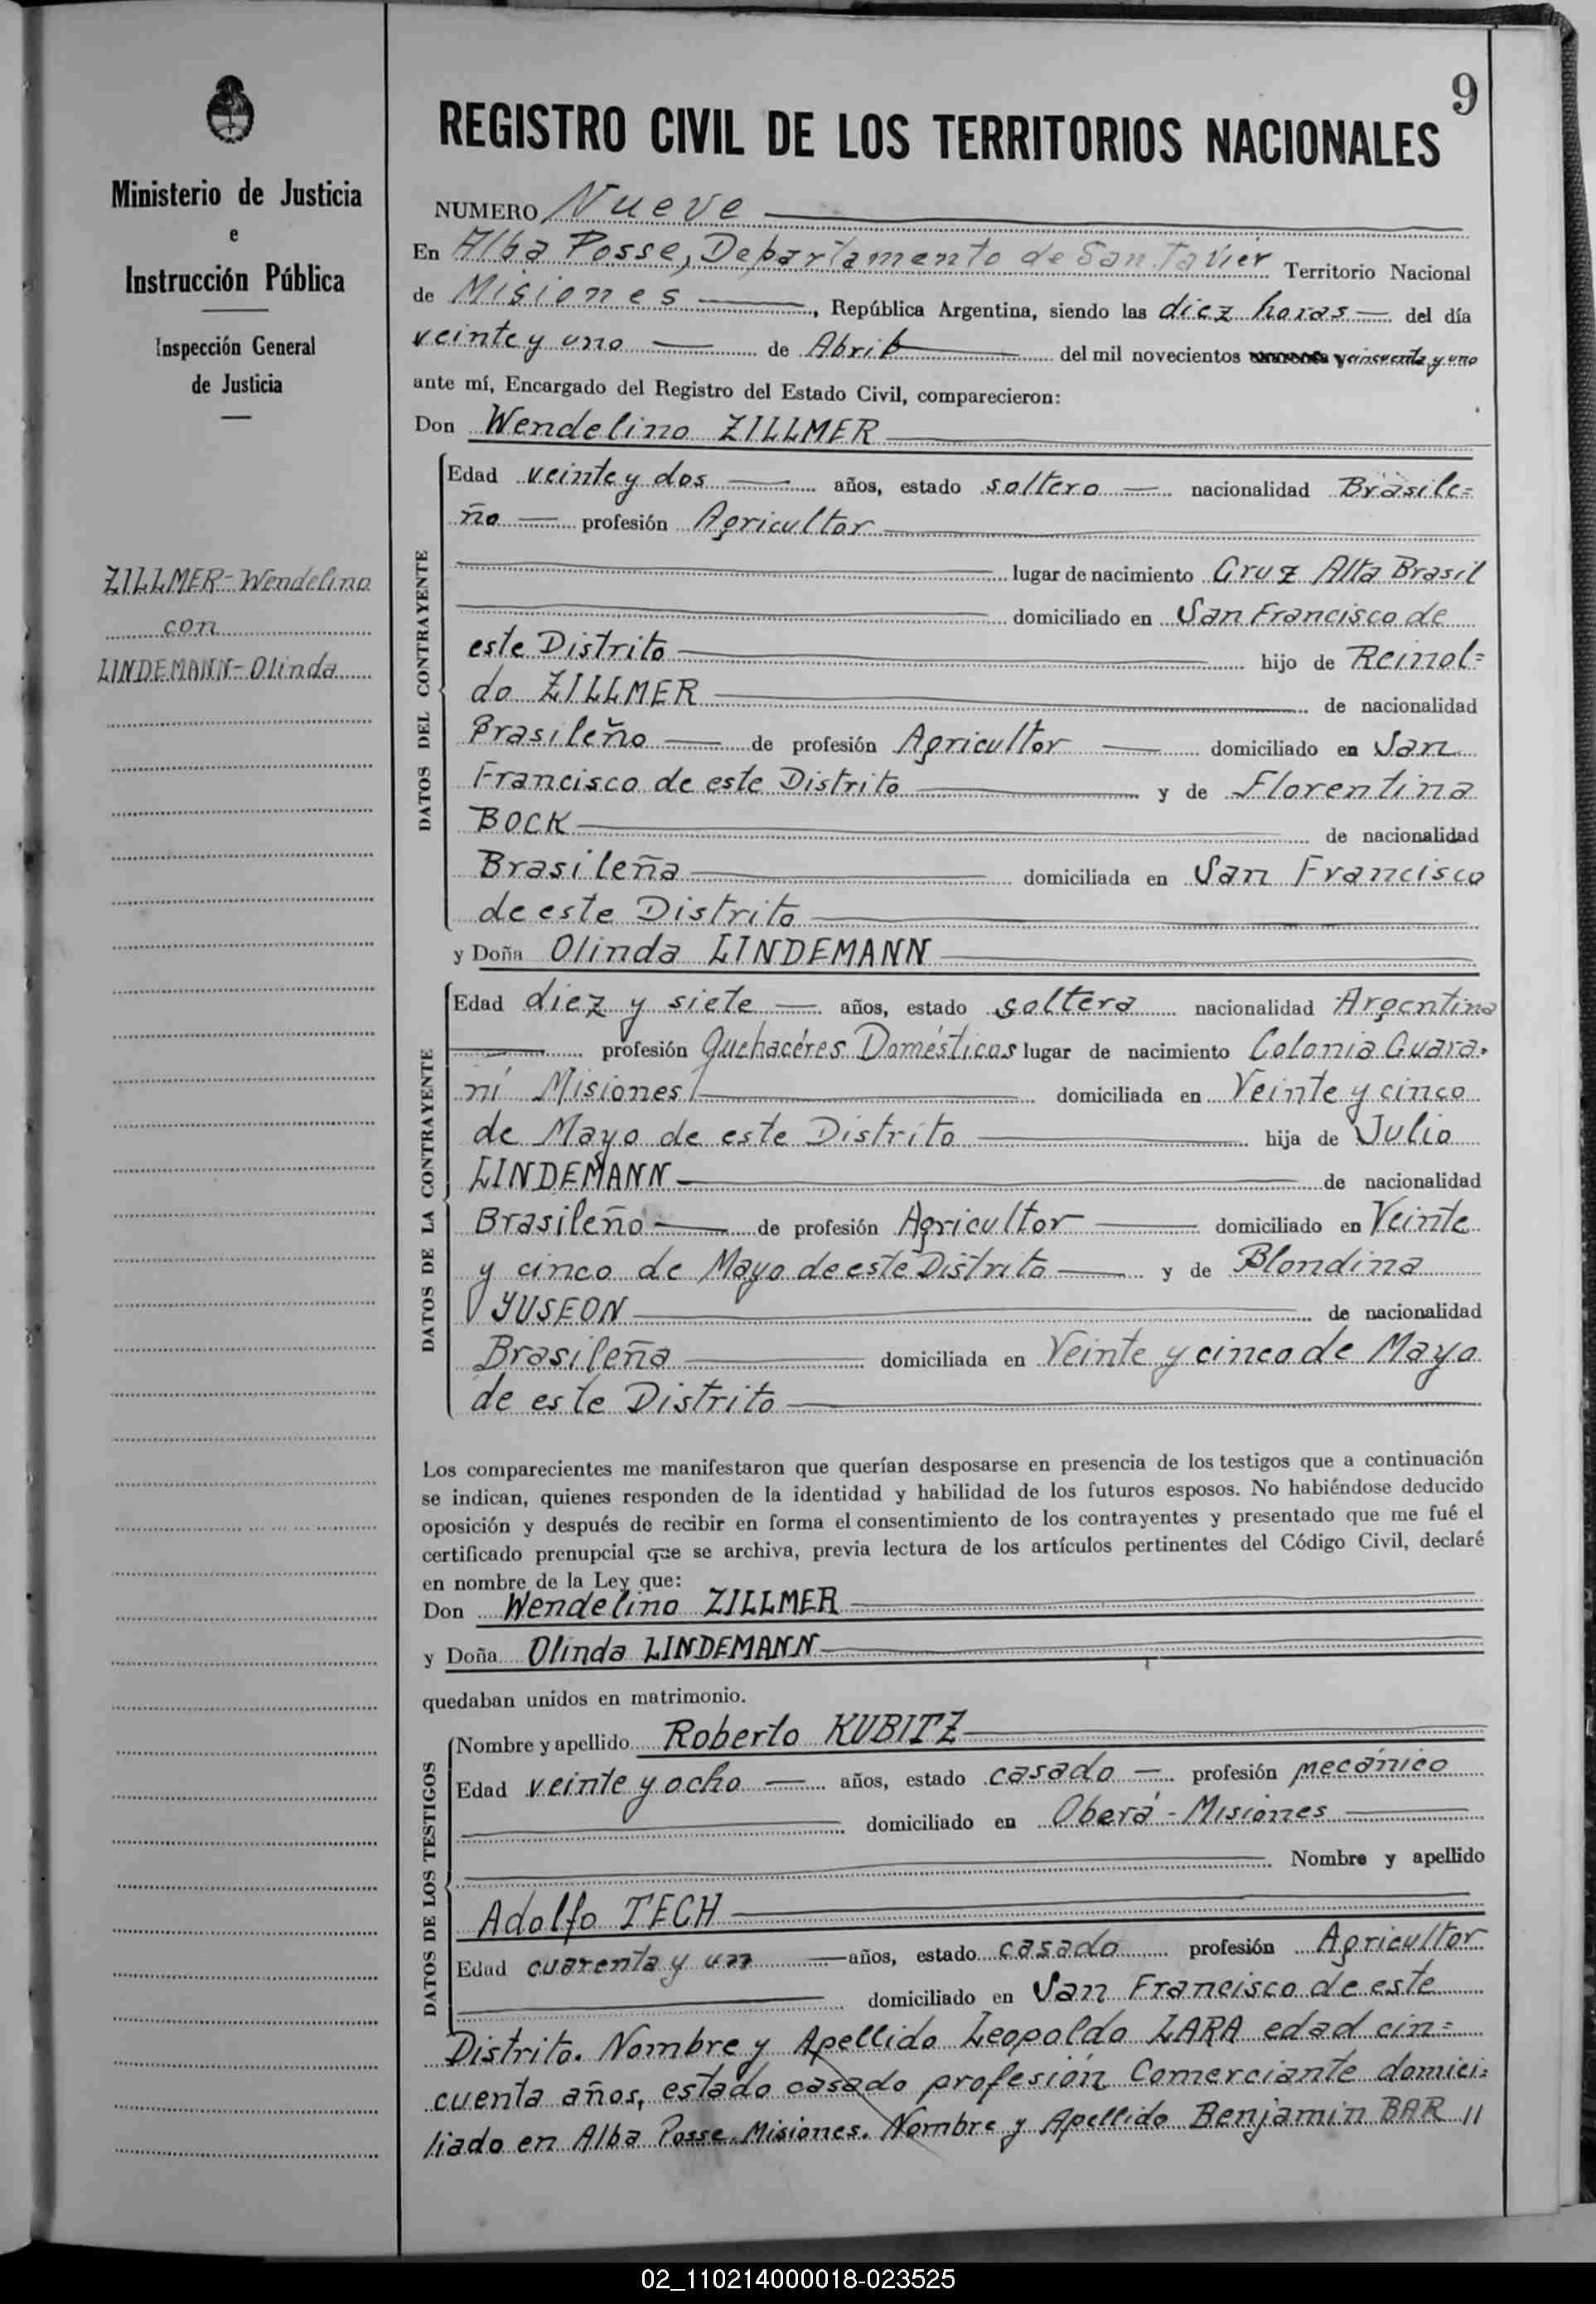 9
REGISTRO CIVIL DE LOS TERRITORIOS NACIONALES
Ministerio de Justicia
e
Instrucción Pública
Inspección General
de Justicia
ZILLMER-Wendelino
con
LINDEMANN-Olinda
NUMERO Nueve
En Alba Posse, Departamento de San Javier Territorio Nacional
de Misiones, República Argentina, siendo las diez horas del día
veinte y uno de Abril del mil novecientos cincuenta y uno
ante mí, Encargado del Registro del Estado Civil, comparecieron:
Don Wendelino ZILLMER
DATOS DEL CONTRAYENTE
Edad veinte y dos años, estado soltero nacionalidad Brasile=
ño profesión Agricultor
lugar de nacimiento Cruz Alta Brasil
domiciliado en San Francisco de
este Distrito hijo de Reinol=
do ZILLMER de nacionalidad
Brasileño de profesión Agricultor domiciliado en San
Francisco de este Distrito y de Florentina
BOCK de nacionalidad
Brasileña domiciliada en San Francisco
de este Distrito
y Doña Olinda LINDEMANN
DATOS DE LA CONTRAYENTE
Edad diez y siete años, estado soltera nacionalidad Argentina
profesión Quehacéres Domésticos lugar de nacimiento Colonia Guara-
ní Misiones domiciliada en Veinte y cinco
de Mayo de este Distrito hija de Julio
LINDEMANN de nacionalidad
Brasileño de profesión Agricultor domiciliado en Veinte
y cinco de Mayo de este Distrito y de Blondina
YUSEON de nacionalidad
Brasileña domiciliada en Veinte y cinco de Mayo
de este Distrito
Los comparecientes me manifestaron que querían desposarse en presencia de los testigos que a continuación
se indican, quienes responden de la identidad y habilidad de los futuros esposos. No habiéndose deducido
oposición y después de recibir en forma el consentimiento de los contrayentes y presentado que me fué el
certificado prenupcial que se archiva, previa lectura de los artículos pertinentes del Código Civil, declaré
en nombre de la Ley que:
Don Wendelino ZILLMER
y Doña Olinda LINDEMANN
quedaban unidos en matrimonio.
DATOS DE LOS TESTIGOS
Nombre y apellido Roberto KUBITZ
Edad veinte y ocho años, estado casado profesión mecánico
domiciliado en Oberá - Misiones
Nombre y apellido
Adolfo TECH
Edad cuarenta y un años, estado casado profesión Agricultor
domiciliado en San Francisco de este
Distrito. Nombre y Apellido Leopoldo LARA edad cin=
cuenta años, estado casado profesión Comerciante domici=
liado en Alba Posse. Misiones. Nombre y Apellido Benjamin BAR //
02_110214000018-023525